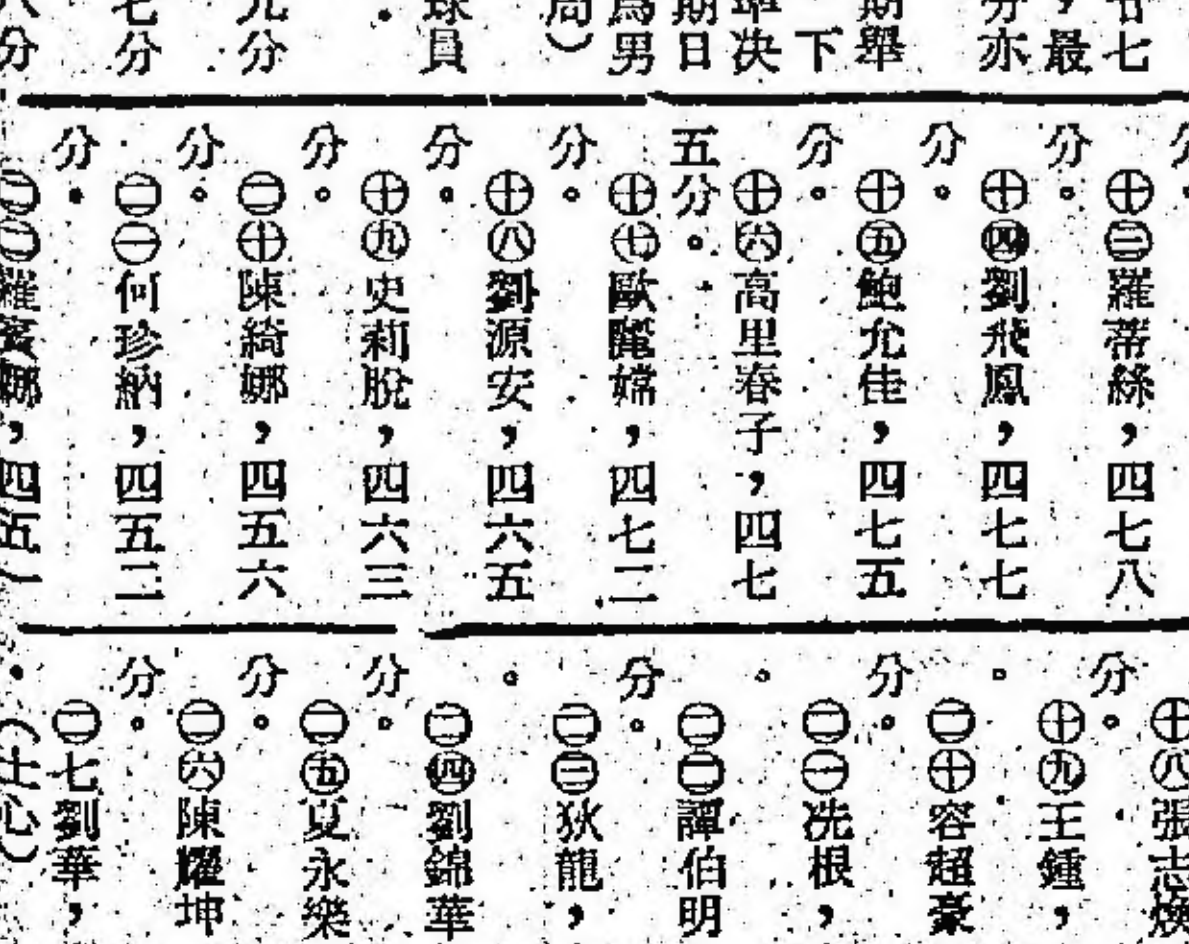 廿七
，最
分亦
期舉
下
準決
期日
爲男
周）
球員
。
九分
七分
八分
㊉㊂羅蒂絲，四七八
分。
㊉㊃劉飛鳳，四七七
分。
㊉㊄鮑允佳，四七五
分。
㊉㊅高里春子，四七
五分。
㊉㊆歐麗嫦，四七二
分。
㊉㊇劉源安，四六五
分。
㊉㊈史莉脫，四六三
分。
㊁㊉陳綺娜，四五六
分。
㊁㊀何珍納，四五二
分。
㊁㊁羅賓娜，四五一
㊉㊇張志煥
分。
㊉㊈王鍾，
。
㊁㊉容超豪
分。
㊁㊀冼根，
。
㊁㊁譚伯明
分。
㊁㊂狄龍，
。
㊁㊃劉錦華
分。
㊁㊄夏永樂
分。
㊁㊅陳耀坤
分。
㊁七劉華，
。（士心）